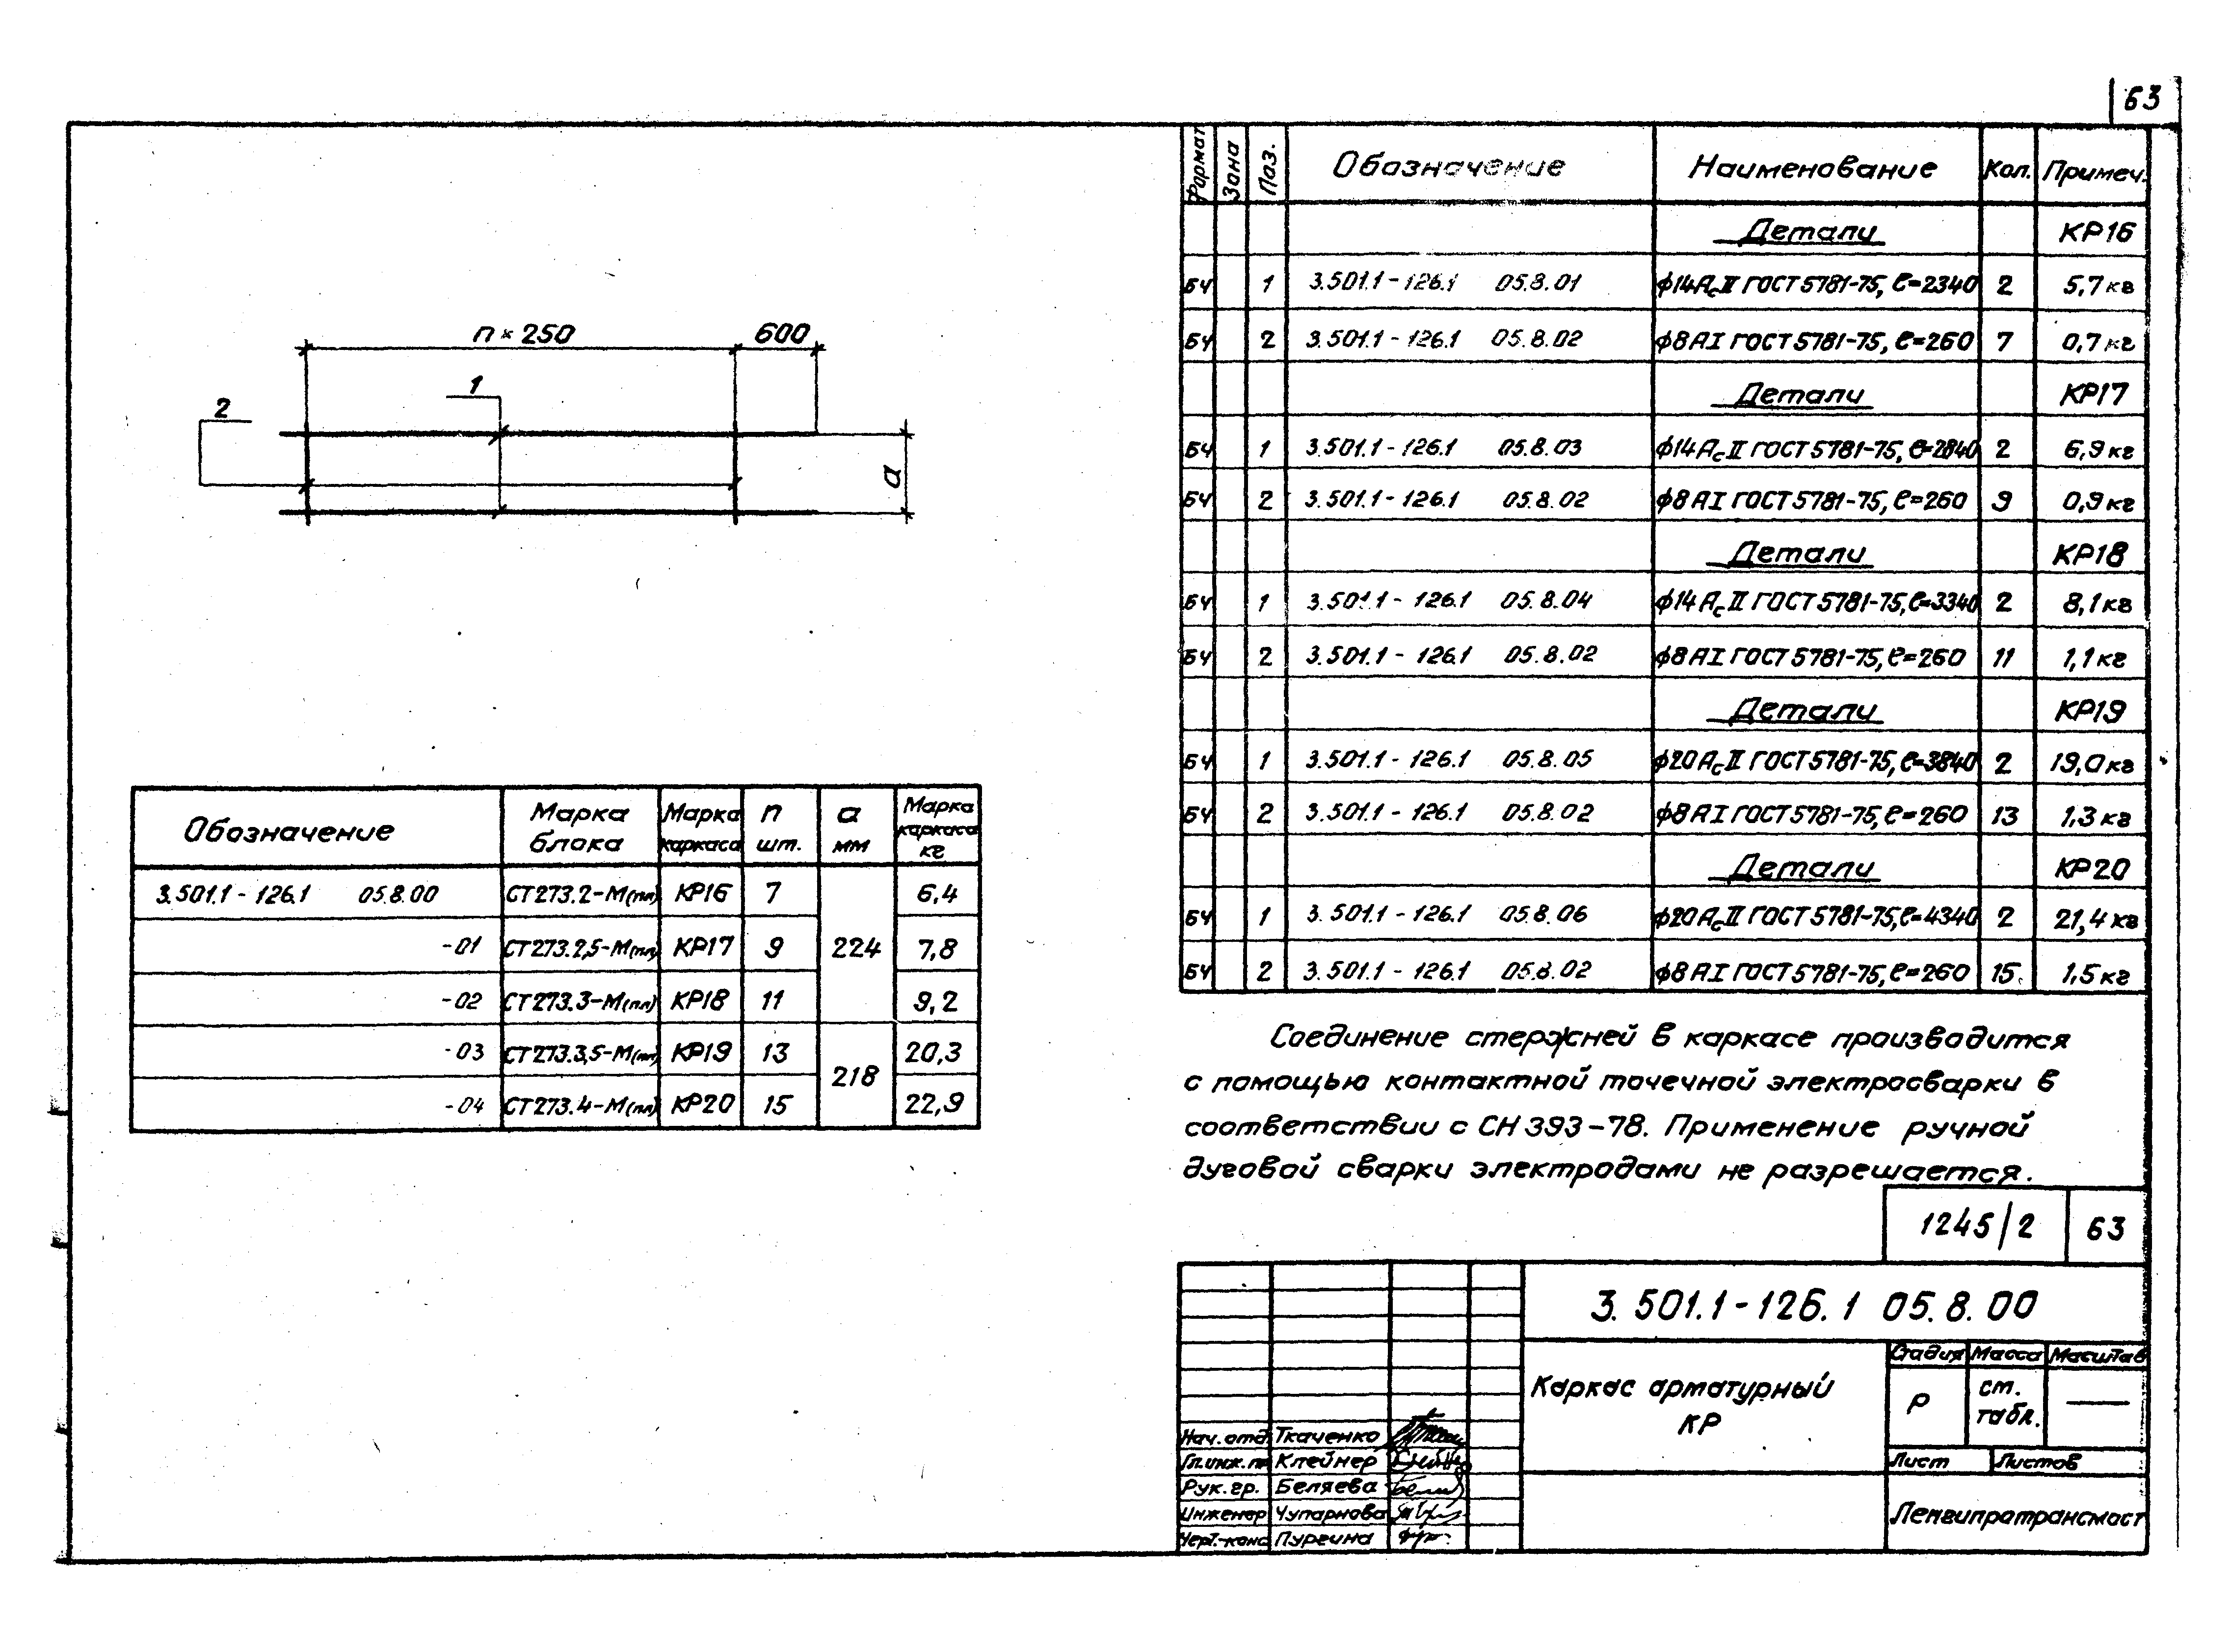 63
n × 250 600
1
2
a
Обозначение Марка блока Марка каркаса n шт. a мм Марка каркаса кг
3.501.1-126.1 05.8.00 СТ273.2-М(пл) КР16 7 6,4
-01 СТ273.2,5-М(пл) КР17 9 224 7,8
-02 СТ273.3-М(пл) КР18 11 9,2
-03 СТ273.3,5-М(пл) КР19 13 20,3
218
-04 СТ273.4-М(пл) КР20 15 22,9
Формат Зона Поз. Обозначение Наименование Кол. Примеч.
Детали КР16
БЧ 1 3.501.1-126.1 05.8.01 ϕ14АcII ГОСТ 5781-75, ℓ=2340 2 5,7кг
БЧ 2 3.501.1-126.1 05.8.02 ϕ8АI ГОСТ 5781-75, ℓ=260 7 0,7кг
Детали КР17
БЧ 1 3.501.1-126.1 05.8.03 ϕ14АcII ГОСТ 5781-75, ℓ=2840 2 6,9кг
БЧ 2 3.501.1-126.1 05.8.02 ϕ8АI ГОСТ 5781-75, ℓ=260 9 0,9кг
Детали КР18
БЧ 1 3.501.1-126.1 05.8.04 ϕ14АcII ГОСТ 5781-75, ℓ=3340 2 8,1кг
БЧ 2 3.501.1-126.1 05.8.02 ϕ8АI ГОСТ 5781-75, ℓ=260 11 1,1кг
Детали КР19
БЧ 1 3.501.1-126.1 05.8.05 ϕ20АcII ГОСТ 5781-75, ℓ=3840 2 19,0кг
БЧ 2 3.501.1-126.1 05.8.02 ϕ8АI ГОСТ 5781-75, ℓ=260 13 1,3кг
Детали КР20
БЧ 1 3.501.1-126.1 05.8.06 ϕ20АcII ГОСТ 5781-75, ℓ=4340 2 21,4кг
БЧ 2 3.501.1-126.1 05.8.02 ϕ8АI ГОСТ 5781-75, ℓ=260 15 1,5кг
Соединение стержней в каркасе производится
с помощью контактной точечной электросварки в
соответствии с СН 393-78. Применение ручной
дуговой сварки электродами не разрешается.
1245/2 63
3.501.1-126.1 05.8.00
Каркас арматурный
КР
Стадия Масса Масштаб
Р ст. табл. —
Лист Листов
Ленгипротрансмост
Нач. отд. Ткаченко
Гл.инж.пр Клейнер
Рук. гр. Беляева
Инженер Чупарнова
Черт.-конс Пургина